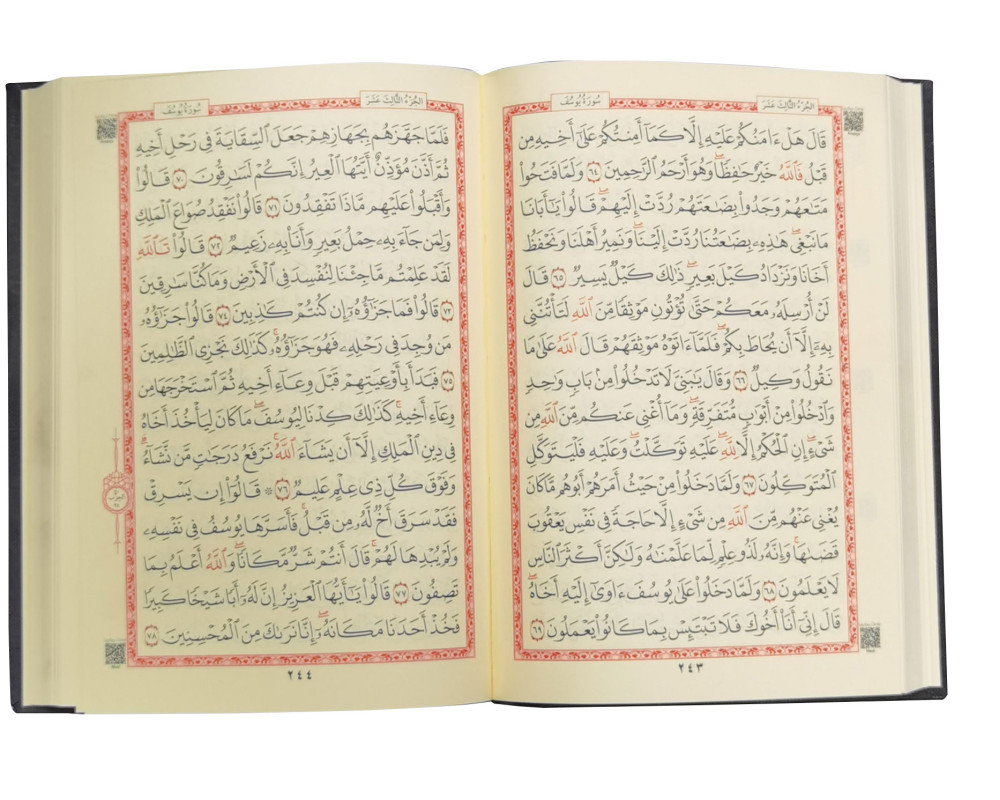 الجزء الثالث عشر
سورة يوسف
قَالَ هَلْ ءَامَنُكُمْ عَلَيْهِ إِلَّا كَمَآ أَمِنتُكُمْ عَلَىٰٓ أَخِيهِ مِن
قَبْلُ فَٱللَّهُ خَيْرٌ حَٰفِظًاۖ وَهُوَ أَرْحَمُ ٱلرَّٰحِمِينَ ٦٤ وَلَمَّا فَتَحُوا۟
مَتَٰعَهُمْ وَجَدُوا۟ بِضَٰعَتَهُمْ رُدَّتْ إِلَيْهِمْۖ قَالُوا۟ يَٰٓأَبَانَا
مَا نَبْغِىۖ هَٰذِهِۦ بِضَٰعَتُنَا رُدَّتْ إِلَيْنَاۖ وَنَمِيرُ أَهْلَنَا وَنَحْفَظُ
أَخَانَا وَنَزْدَادُ كَيْلَ بَعِيرٍۖ ذَٰلِكَ كَيْلٌ يَسِيرٌ ٦٥ قَالَ
لَنْ أُرْسِلَهُۥ مَعَكُمْ حَتَّىٰ تُؤْتُونِ مَوْثِقًا مِّنَ ٱللَّهِ لَتَأْتُنَّنِى
بِهِۦٓ إِلَّآ أَن يُحَاطَ بِكُمْۖ فَلَمَّآ ءَاتَوْهُ مَوْثِقَهُمْ قَالَ ٱللَّهُ عَلَىٰ مَا
نَقُولُ وَكِيلٌ ٦٦ وَقَالَ يَٰبَنِىَّ لَا تَدْخُلُوا۟ مِنۢ بَابٍ وَٰحِدٍ
وَٱدْخُلُوا۟ مِنْ أَبْوَٰبٍ مُّتَفَرِّقَةٍۖ وَمَآ أُغْنِى عَنكُم مِّنَ ٱللَّهِ مِن
شَىْءٍۖ إِنِ ٱلْحُكْمُ إِلَّا لِلَّهِۖ عَلَيْهِ تَوَكَّلْتُۖ وَعَلَيْهِ فَلْيَتَوَكَّلِ
ٱلْمُتَوَكِّلُونَ ٦٧ وَلَمَّا دَخَلُوا۟ مِنْ حَيْثُ أَمَرَهُمْ أَبُوهُم مَّا كَانَ
يُغْنِى عَنْهُم مِّنَ ٱللَّهِ مِن شَىْءٍ إِلَّا حَاجَةً فِى نَفْسِ يَعْقُوبَ
قَضَىٰهَاۚ وَإِنَّهُۥ لَذُو عِلْمٍ لِّمَا عَلَّمْنَٰهُ وَلَٰكِنَّ أَكْثَرَ ٱلنَّاسِ
لَا يَعْلَمُونَ ٦٨ وَلَمَّا دَخَلُوا۟ عَلَىٰ يُوسُفَ ءَاوَىٰٓ إِلَيْهِ أَخَاهُۖ
قَالَ إِنِّىٓ أَنَا۠ أَخُوكَ فَلَا تَبْتَئِسْ بِمَا كَانُوا۟ يَعْمَلُونَ ٦٩
٢٤٣
الجزء الثالث عشر
سورة يوسف
فَلَمَّا جَهَّزَهُم بِجَهَازِهِمْ جَعَلَ ٱلسِّقَايَةَ فِى رَحْلِ أَخِيهِ
ثُمَّ أَذَّنَ مُؤَذِّنٌ أَيَّتُهَا ٱلْعِيرُ إِنَّكُمْ لَسَٰرِقُونَ ٧٠ قَالُوا۟
وَأَقْبَلُوا۟ عَلَيْهِم مَّاذَا تَفْقِدُونَ ٧١ قَالُوا۟ نَفْقِدُ صُوَاعَ ٱلْمَلِكِ
وَلِمَن جَآءَ بِهِۦ حِمْلُ بَعِيرٍ وَأَنَا۠ بِهِۦ زَعِيمٌ ٧٢ قَالُوا۟ تَٱللَّهِ
لَقَدْ عَلِمْتُم مَّا جِئْنَا لِنُفْسِدَ فِى ٱلْأَرْضِ وَمَا كُنَّا سَٰرِقِينَ
٧٣ قَالُوا۟ فَمَا جَزَٰٓؤُهُۥٓ إِن كُنتُمْ كَٰذِبِينَ ٧٤ قَالُوا۟ جَزَٰٓؤُهُۥ
مَن وُجِدَ فِى رَحْلِهِۦ فَهُوَ جَزَٰٓؤُهُۥۚ كَذَٰلِكَ نَجْزِى ٱلظَّٰلِمِينَ
٧٥ فَبَدَأَ بِأَوْعِيَتِهِمْ قَبْلَ وِعَآءِ أَخِيهِ ثُمَّ ٱسْتَخْرَجَهَا مِن
وِعَآءِ أَخِيهِۚ كَذَٰلِكَ كِدْنَا لِيُوسُفَۖ مَا كَانَ لِيَأْخُذَ أَخَاهُ
فِى دِينِ ٱلْمَلِكِ إِلَّآ أَن يَشَآءَ ٱللَّهُۚ نَرْفَعُ دَرَجَٰتٍ مَّن نَّشَآءُۗ
وَفَوْقَ كُلِّ ذِى عِلْمٍ عَلِيمٌ ٧٦ ۞ قَالُوٓا۟ إِن يَسْرِقْ
فَقَدْ سَرَقَ أَخٌ لَّهُۥ مِن قَبْلُۚ فَأَسَرَّهَا يُوسُفُ فِى نَفْسِهِۦ
وَلَمْ يُبْدِهَا لَهُمْۚ قَالَ أَنتُمْ شَرٌّ مَّكَانًاۖ وَٱللَّهُ أَعْلَمُ بِمَا
تَصِفُونَ ٧٧ قَالُوا۟ يَٰٓأَيُّهَا ٱلْعَزِيزُ إِنَّ لَهُۥٓ أَبًا شَيْخًا كَبِيرًا
فَخُذْ أَحَدَنَا مَكَانَهُۥٓۖ إِنَّا نَرَىٰكَ مِنَ ٱلْمُحْسِنِينَ ٧٨
٢٤٤